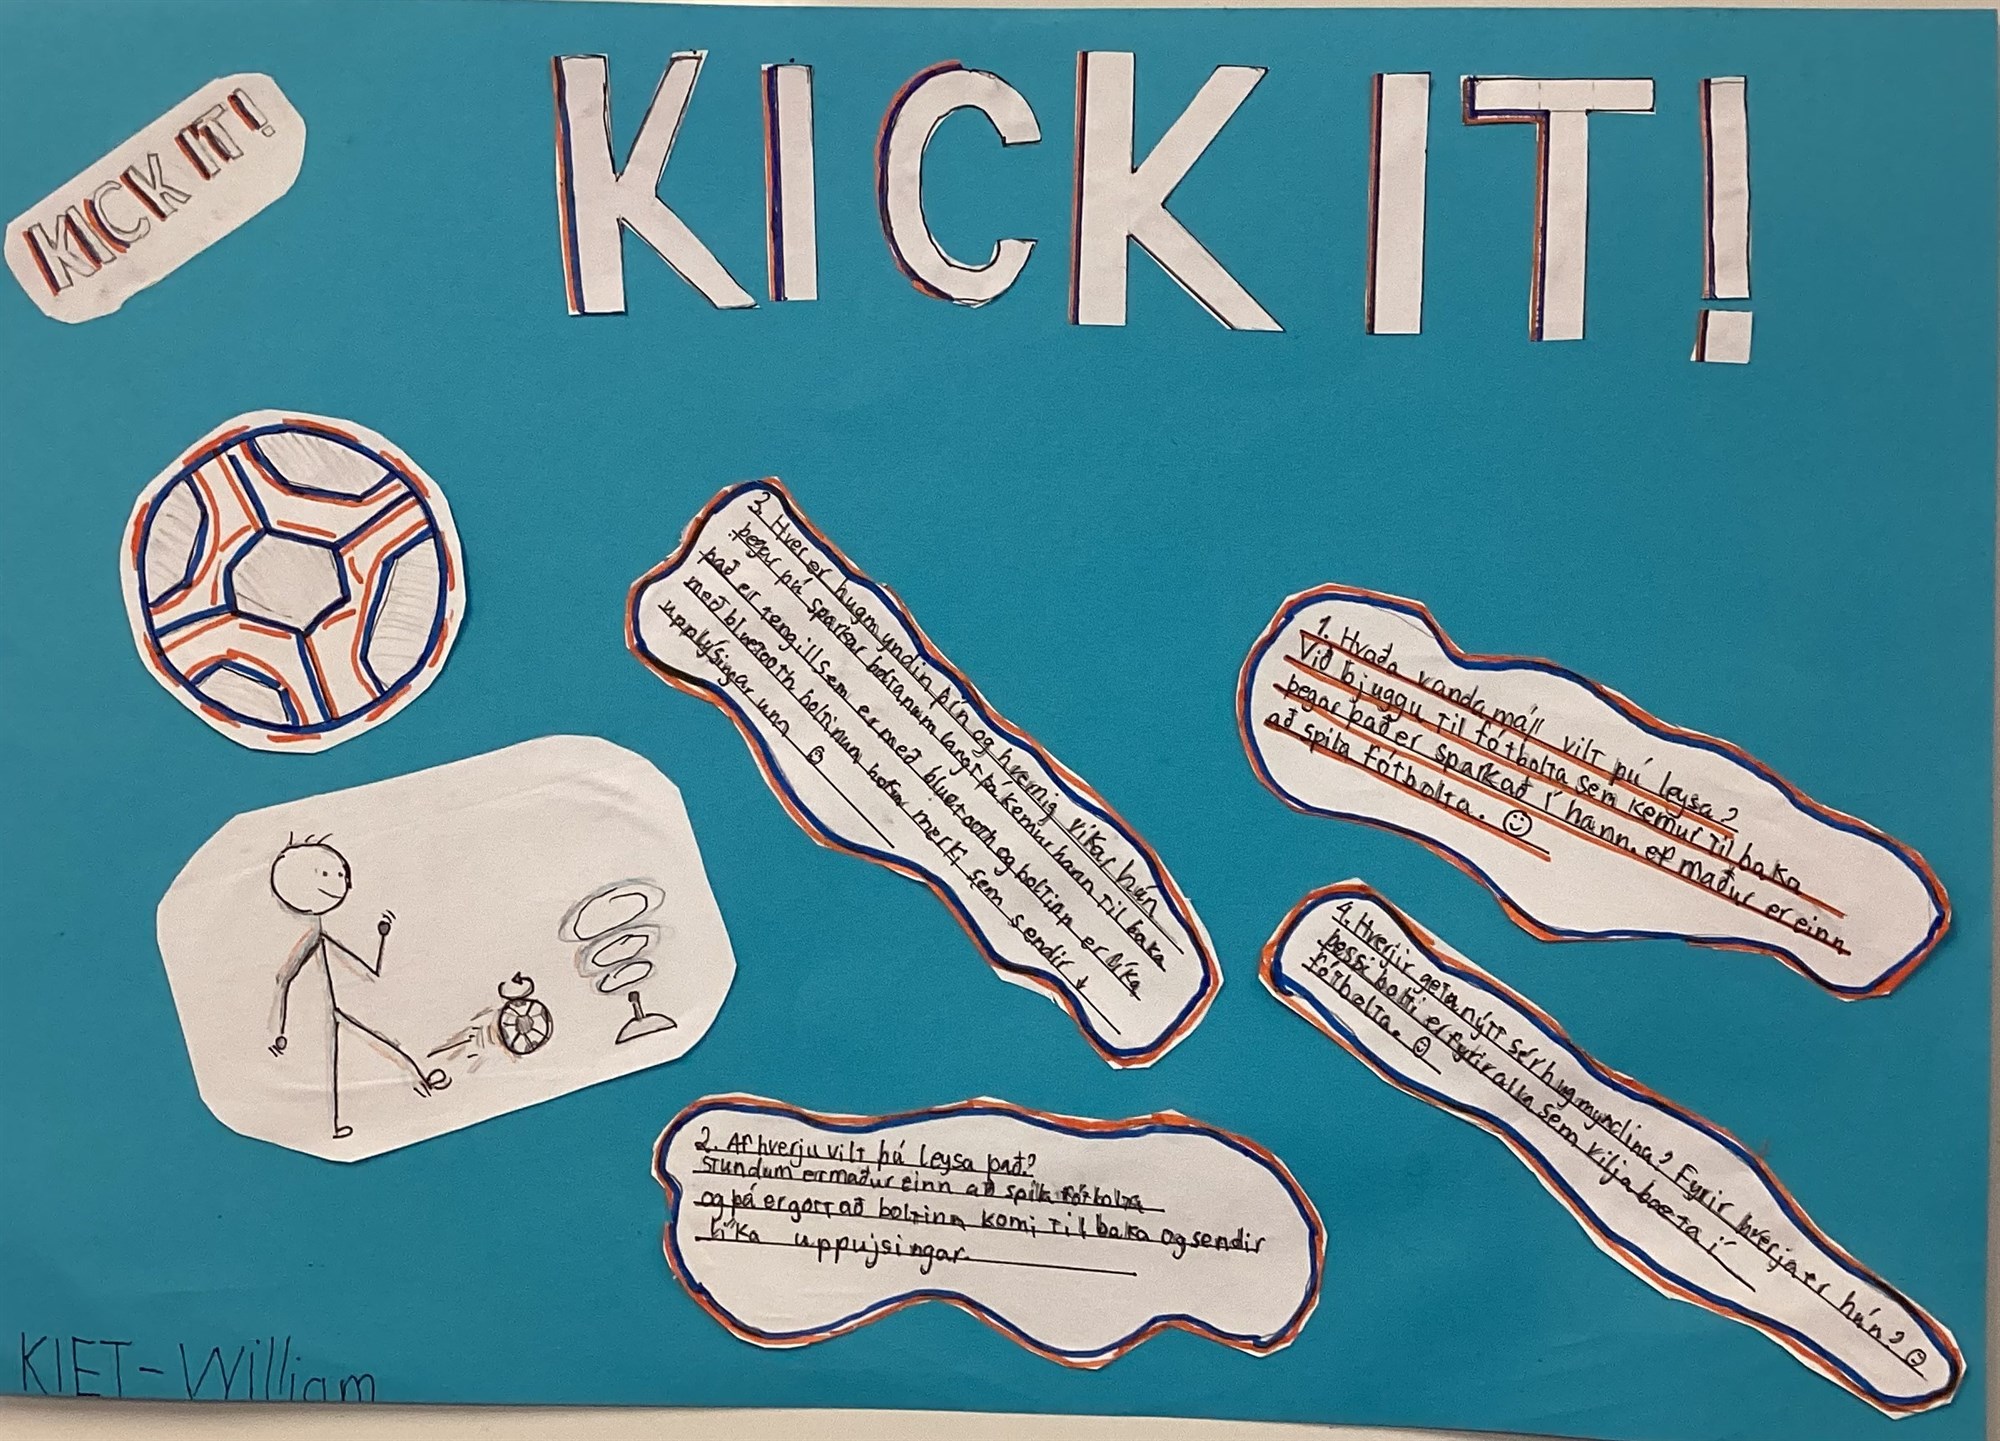 KICK IT!
KICK IT!
3. Hver er hugmyndin þín og hvernig vikar hún
þegar þú sparkar boltanum langt þá kemur hann til baka
það er tengill sem er með bluetooth og boltinn er líka
með bluetooth boltinum hefur merki sem sendir ↓
upplýsingar um ☺
1. Hvaða vandamáll vilt þú leysa?
Við bjuggu til fótbolta sem kemur til baka
þegar það er sparkað í hann. ef maður er einn
að spila fótbolta. ☺
4. Hverjir geta nýtt sér hugmyndina? Fyrir hverja er hún? ☺
þessi bolti er fyrir alla sem vilja baeta í
fótbolta. ☺
2. Af hverju vilt þú leysa það?
Stundum er maður einn að spila fótbolta
og þá er gott að boltinn komi til baka og sendir
líka uppujsingar.
KIET-William